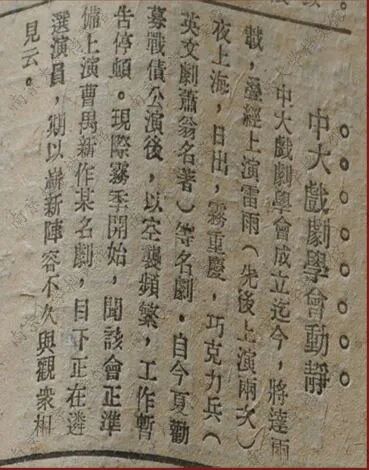 中大戲劇學會動靜
中大戲劇學會成立迄今，將達兩
載，疊經上演雷雨（先後上演兩次）
夜上海，日出，霧重慶，巧克力兵（
英文劇蕭翁名著）等名劇。自今夏勸
募戰債公演後，以空襲頻繁，工作暫
告停頓。現際霧季開始，聞該會正準
備上演曹禺新作某名劇，目下正在遴
選演員，期以嶄新陣容不久與觀衆相
見云。